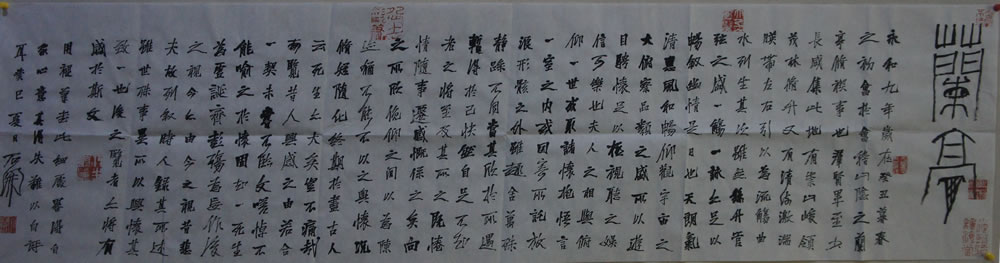 蘭亭
永和九年歲在癸丑暮春
之初會於會稽山陰之蘭
亭脩禊事也群賢畢至少
長咸集此地有崇山峻領
茂林脩竹又有清流激湍
暎帶左右引以為流觴曲
水列坐其次雖無絲竹管
弦之盛一觴一詠亦足以
暢敘幽情是日也天朗氣
清惠風和暢仰觀宇宙之
大俯察品類之盛所以遊
目騁懷足以極視聽之娛
信可樂也夫人之相與俯
仰一世或取諸懷抱悟言
一室之內或因寄所託放
浪形骸之外雖趣舍萬殊
靜躁不同當其欣於所遇
暫得於己快然自足不知
老之將至及其所之既倦
情隨事遷感慨係之矣向
之所欣俛仰之間以為陳
迹猶不能不以之興懷況
脩短隨化終期於盡古人
云死生亦大矣豈不痛哉
每覽昔人興感之由若合
一契未嘗不臨文嗟悼不
能喻之於懷固知一死生
為虛誕齊彭殤為妄作後
之視今亦由今之視昔悲
夫故列敘時人錄其所述
雖世殊事異所以興懷其
致一也後之覽者亦將有
感於斯文
癸巳夏日